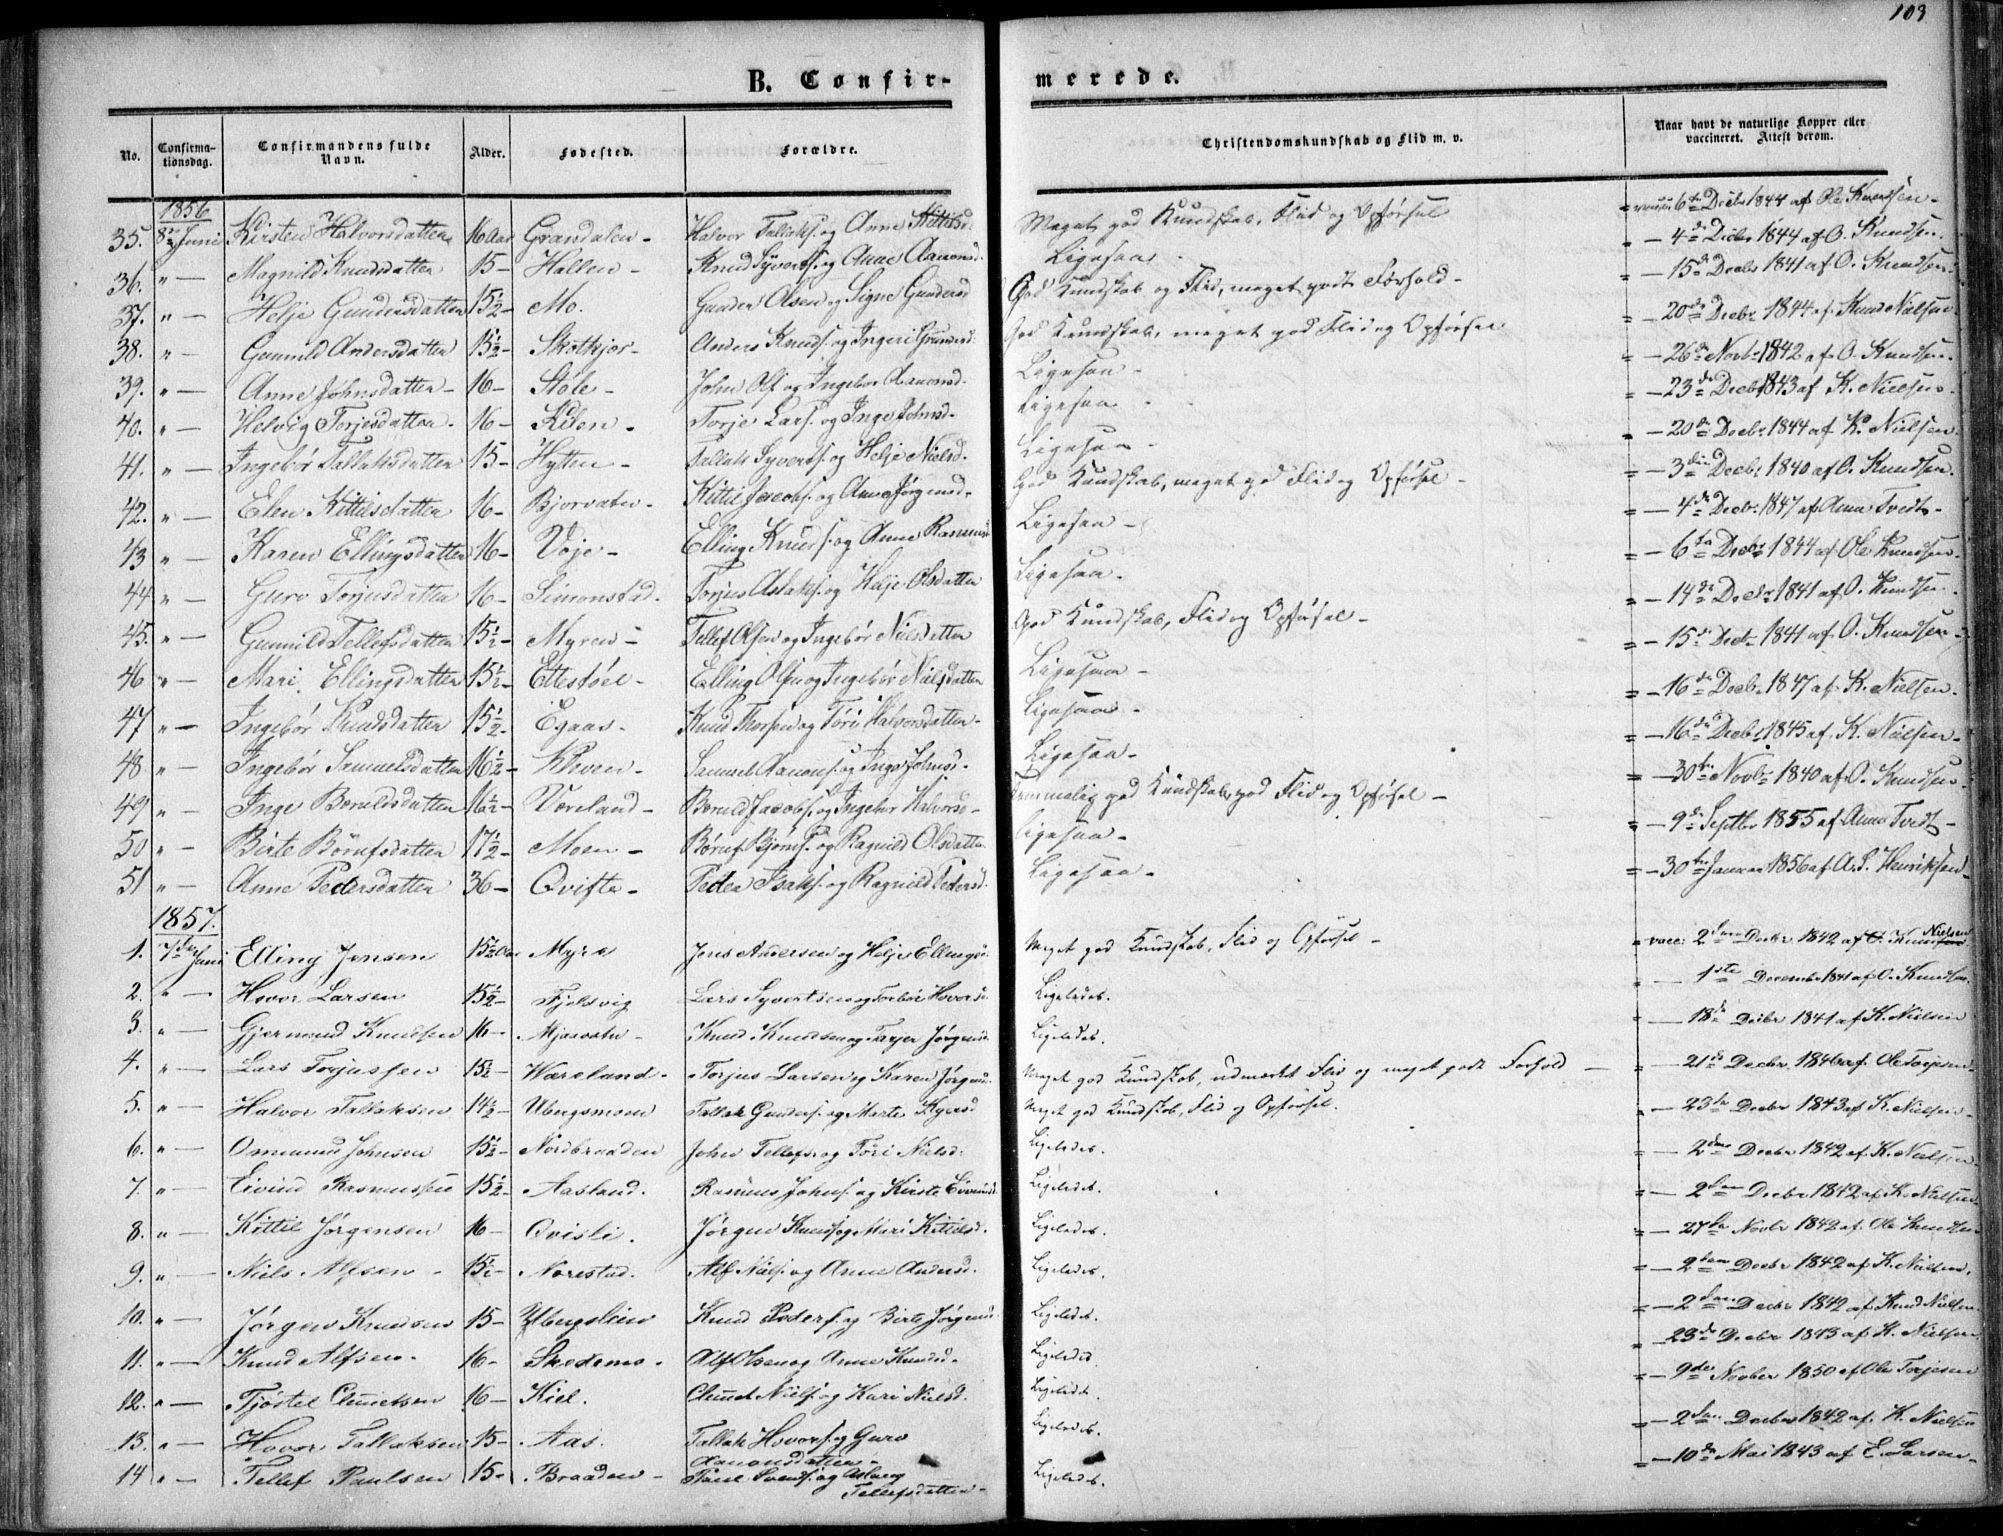 103
B. Confirmerede.
No. Confirmationsdag. Confirmandens fulde Navn. Alder. Fødested. Forældre. Christendomskundskab og Flid m. v. Naar havt de naturlige Kopper eller vaccineret. Attest derom.
1856
35. 8de Juni Kirsten Halvorsdatter 16 Aar Grandalen - Halvor Tallaks. og Anne Kittilsd. Meget god Kundskab, Flid og Opførsel 6te Decbr 1844 af Ole Knudsen -
36. " — Magnild Knudsdatter 15 - Hallen - Knud Syverts. og Anne Aanonsd. Ligesaa - — 4de Decbr 1844 af O. Knudsen.
37. " — Helje Gundersdatter 15½ - Mo. Gunder Olsen og Signe Gundersd God Kundskab og Flid, meget godt Forhold - — 15de Decbr 1841 af O. Knudsen
38. " — Gunnild Andersdatter 15½ - Skotkjør - Anders Knuds. og Ingeri Gundersd. God Kundskab, meget god Flid og Opførsel — 20de Decbr 1844 af Knud Nielsen
39. " — Anne Johnsdatter - 16 - Støle - John Ols. og Ingebor Aanonsd. Ligesaa - — 26de Novbr 1842 af O. Knudsen.
40. " — Helvig Torjesdatter. 16 - Kilen - Torje Lars. og Inge Johnsd. Ligesaa — 23de Decbr 1843 af K. Nielsen
41. " — Ingebør Tallaksdatter 15 - Hytten - Tallak Syverts. og Helje Nielsd. Ligesaa - — 20de Decbr 1844 af K. Nielsen
42. " — Elen Kittilsdatter 16 - Bjorvatn - Kittil Jacobs. og Anne Jørgensd. God Kundskab, meget god Flid og Opførsel - — 3die Decbr 1840 af O. Knudsen
43 " — Karen Ellingsdatter 16 - Voje - Elling Knuds. og Anne Rasmusd Ligesaa - — 4de Decbr 1847 af Anna Tvedt -
44 " — Guro Torjusdatter 16 - Simonstad. Torjus Aslaks. og Helje Olsdatter Ligesaa - — 6te Decbr 1844 af Ole Knudsen.
45. " — Gunnild Tellefsdatter 15½ - Myren - Tellef Olsen og Ingebør Nielsdatter God Kundskab, Flid og Opførsel - — 14de Decbr 1841 af O. Knudsen.
46 " — Mari Ellingsdatter 15½ - Ettestøel - Elling Olsen og Ingebør Nielsdatter Ligesaa - — 15de Decbr 1841 af O. Knudsen
47 " — Ingebør Knudsdatter 15½ - Egaas - Knud Thorsen og Tøri Halvorsdatter - Ligesaa - — 16de Decbr 1847 af K. Nielsen.
48 " — Ingebør Samuelsdatter 16½ - Khven - Samuel Aanons. og Inge Johnsd. Ligesaa - — 16de Decbr 1845 af K. Nielsen
49 " — Inge Beruldsdatter 16½ - Vøreland - Beruld Jacobs. og Ingebør Halvorsd - Temmelig god Kundskab, god Flid og Opførsel - — 30te Novbr 1840 af O. Knudsen
50 " — Birte Børufsdatter 17½ - Moen - Børuf Bjørns. og Ragnild Olsdatter Ligesaa - — 9de Septbr 1855 af Anna Tvedt -
51 " — Anne Pedersdatter 36 - Qvifte - Peder Isaks. og Ragnild Pedersd. Ligesaa - — 30te Januar 1856 af A. S. Henriksen
1857.
1. 7de Juni Elling Jensen 15½ Aar Myre Jens Andersen og Helje Ellingsd. Meget god Kundskab, Flid og Opførsel - vacc: 2den Decbr 1842 af K. Nielsen
2. " — Hovor Larsen 15½ - Fjelsvig Lars Syvertsen og Torbør Hovorsd. Ligeledes. — 1ste December 1841 af O. Knudsen.
3. " — Gjermund Knudsen 16 - Mjaavatn - Knud Knudsen og Tarjer Jørgensd. Ligeledes. — 18de Decbr 1841 af K. Nielsen
4. " — Lars Torjussen 15½ - Wæreland - Torjus Larsen og Karen Jørgensd. Meget god Kundskab, udmærket Flid og meget godt Forhold — 21de Decbr 1846 af Ole Torjesen
5. " — Halvor Tallaksen 14½ - Ubergsmoen Tallak Gunders. og Marte Kjersd Meget god Kundskab, Flid og Opførsel. — 23de Decbr 1843 af K. Nielsen
6. " — Ommund Johnsen 15½ - Nordbraaden John Tellefs. og Tøri Nielsd. Ligeledes. — 2den Decbr 1842 af K. Nielsen
7. " — Eivind Rasmussen 15½ - Aasland. Rasmus Johns. og Kirste Eivindsd. Ligeledes. — 2den Decbr 1842 af K. Nielsen
8. " — Kittil Jørgensen 16 - Qvisli. Jørgen Knuds. og Mari Kittilsd. Ligeledes. — 27de Novbr 1842 af Ole Knudsen
9. " — Niels Alfsen - 15½ - Nørestad. Alf Niels. og Anne Andersd. Ligeledes. — 2den Decbr 1842 af K. Nielsen.
10. " — Jørgen Knudsen 15 - Ubergslien Knud Peders. og Birte Jørgensd. Ligeledes. — 2den Decbr 1842 af Knud Nielsen
11. " — Knud Alfsen. 16 - Skedsmo. Alf Olsen og Anne Knudsd. Ligeledes — 23de Decbr 1843 af K. Nielsen
12. " — Tjøstel Clunetsen 16 - Kiel. Clunet Niels. og Kari Nielsd. Ligeledes. — 9de Novber 1850 af Ole Torjesen
13. " — Hovor Tallaksen 15 - Aas. Tallak Hovors. og Guro Aanonsdatter - Ligeledes. — 2den Decbr 1842 af K. Nielsen
14 " — Tellef Paulsen 15 - Braaden - Paul Svens. og Aslaug Tellefsdatter - Ligeledes. — 10de Mai 1843 af E. Larsen -